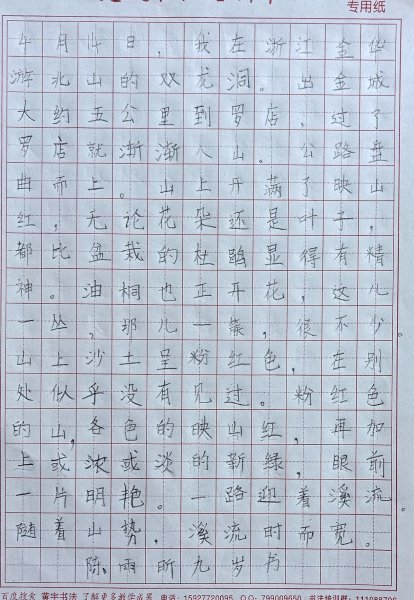 专用纸
4月14日，我在浙江金华
游北山的双龙洞。出金城
大约五公里到罗店，过了
罗店就渐渐入山。公路盘
曲而上。山上开满了映山
红，无论花朵还是叶子，
都比盆栽的杜鹃显得有精
神。油桐也正开花，这儿
一丛，那儿一簇，很不少。
山上沙土呈粉红色，在别
处似乎没有见过。粉红色
的山，各色的映山红，再加
上或浓或淡的新绿，眼前
一片明艳。一路迎着溪流。
随着山势，溪流时而宽。
陈雨昕九岁书
百度搜索 黄宇书法 了解更多教学成果 电话：15927720095 QQ：799009650